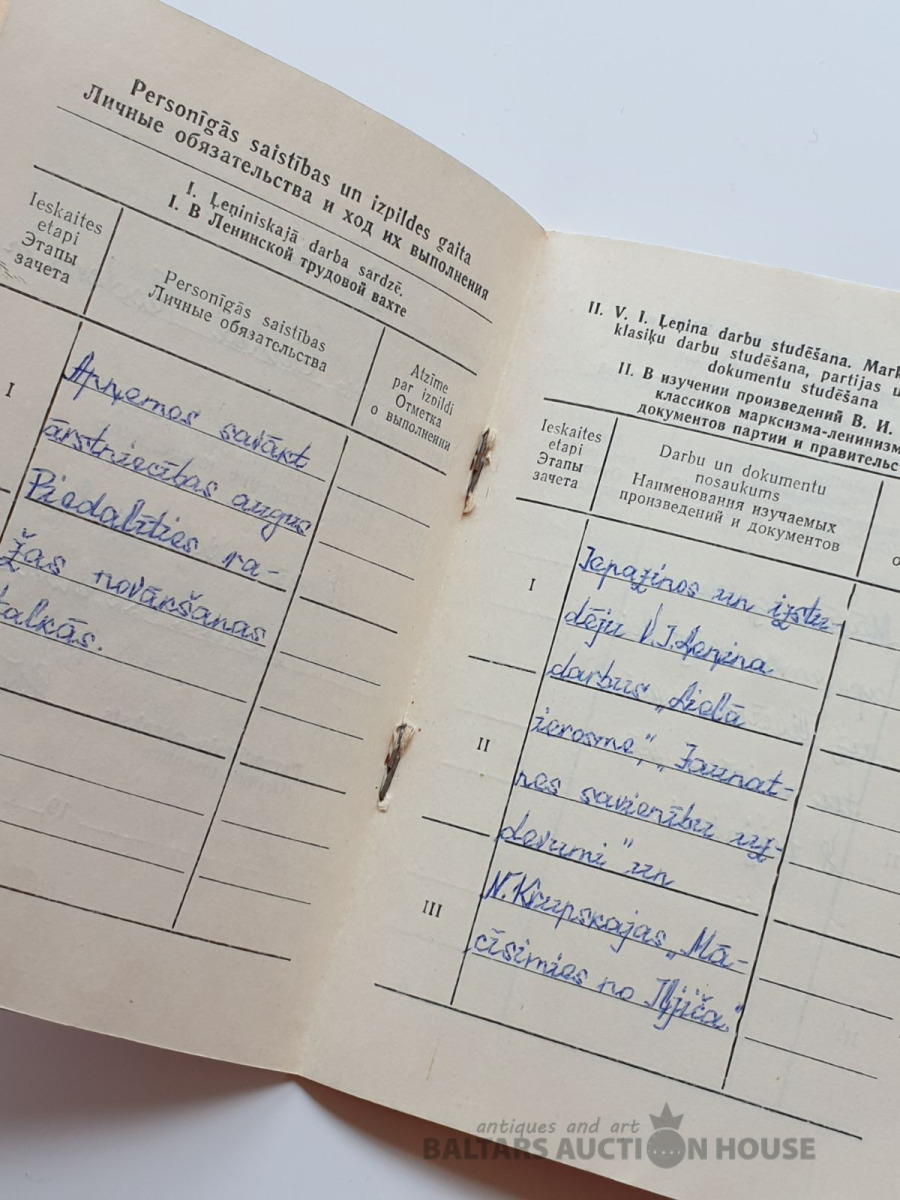 Personīgās saistības un izpildes gaita
Личные обязательства и ход их выполнения
I. Ļeņiniskajā darba sardzē.
I. В Ленинской трудовой вахте
Ieskaites
etapi
Этапы
зачета
Personīgās saistības
Личные обязательства
Atzīme
par izpildi
Отметка
о выполнении
I
Apņemos savākt
ārstniecības augus
Piedalīties ra-
žas novākšanas
talkās.
II. V. I. Ļeņina darbu studēšana. Mark
klasiķu darbu studēšana, partijas u
dokumentu studēšana
II. В изучении произведений В. И.
классиков марксизма-ленинизм
документов партии и правительс
Ieskaites
etapi
Этапы
зачета
Darbu un dokumentu
nosaukums
Наименования изучаемых
произведений и документов
о
I
Iepazinos un izstu-
dēju V.I.Ļeņina
darbus „Lielā
II
ierosme”, „Jaunat-
nes savienību uz-
devumi” un
III
N.Krupskajas „Mā-
cīsimies no Iļjiča.”
antiques and art
BALTARS AUCTION HOUSE